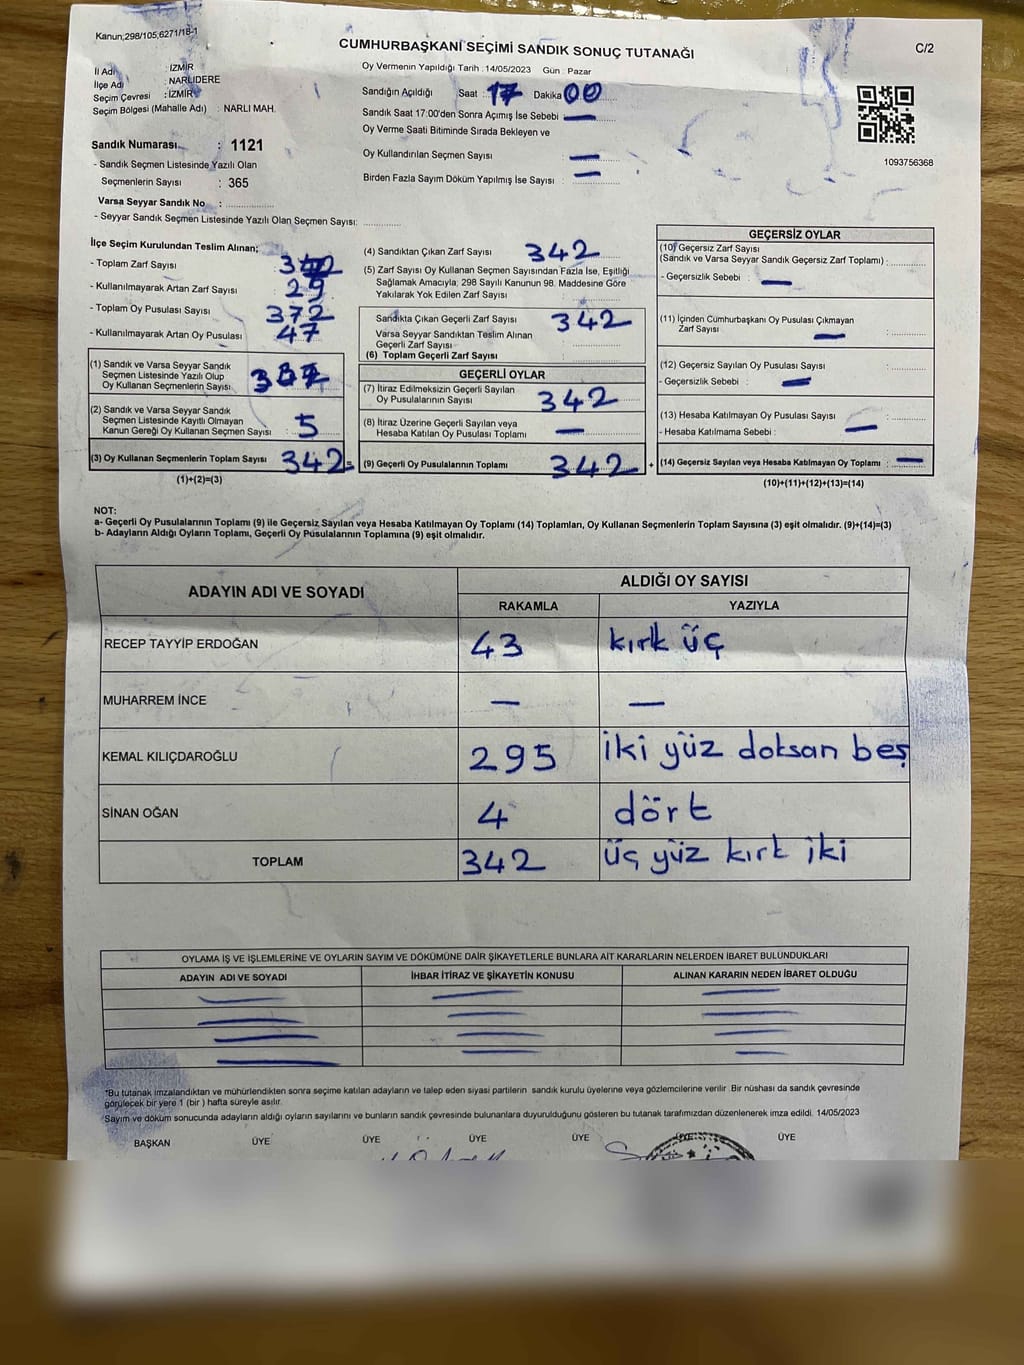 Kanun;298/105,6271/18-1
CUMHURBAŞKANI SEÇİMİ SANDIK SONUÇ TUTANAĞI
C/2
Oy Vermenin Yapıldığı Tarih : 14/05/2023 Gün : Pazar
İl Adı : İZMİR
İlçe Adı : NARLIDERE
Seçim Çevresi : İZMİR
Seçim Bölgesi (Mahalle Adı) : NARLI MAH.
Sandığın Açıldığı Saat : 17 Dakika 00
Sandık Saat 17:00'den Sonra Açımış İse Sebebi : —
Oy Verme Saati Bitiminde Sırada Bekleyen ve
Oy Kullandırılan Seçmen Sayısı : —
Birden Fazla Sayım Döküm Yapılmış İse Sayısı : —
1093756368
Sandık Numarası : 1121
- Sandık Seçmen Listesinde Yazılı Olan
Seçmenlerin Sayısı : 365
Varsa Seyyar Sandık No :
- Seyyar Sandık Seçmen Listesinde Yazılı Olan Seçmen Sayısı:
İlçe Seçim Kurulundan Teslim Alınan;
- Toplam Zarf Sayısı :
- Kullanılmayarak Artan Zarf Sayısı : 29
- Toplam Oy Pusulası Sayısı : 372
- Kullanılmayarak Artan Oy Pusulası : 47
(1) Sandık ve Varsa Seyyar Sandık
Seçmen Listesinde Yazılı Olup
Oy Kullanan Seçmenlerin Sayısı :
(2) Sandık ve Varsa Seyyar Sandık
Seçmen Listesinde Kayıtlı Olmayan
Kanun Gereği Oy Kullanan Seçmen Sayısı : 5
(3) Oy Kullanan Seçmenlerin Toplam Sayısı : 342 =
(1)+(2)=(3)
(4) Sandıktan Çıkan Zarf Sayısı : 342
(5) Zarf Sayısı Oy Kullanan Seçmen Sayısından Fazla İse, Eşitliği
Sağlamak Amacıyla; 298 Sayılı Kanunun 98. Maddesine Göre
Yakılarak Yok Edilen Zarf Sayısı :
Sandıkta Çıkan Geçerli Zarf Sayısı : 342
Varsa Seyyar Sandıktan Teslim Alınan
Geçerli Zarf Sayısı :
(6) Toplam Geçerli Zarf Sayısı :
GEÇERLİ OYLAR
(7) İtiraz Edilmeksizin Geçerli Sayılan
Oy Pusulalarının Sayısı : 342
(8) İtiraz Üzerine Geçerli Sayılan veya
Hesaba Katılan Oy Pusulası Toplamı : —
(9) Geçerli Oy Pusulalarının Toplamı : 342 +
GEÇERSİZ OYLAR
(10) Geçersiz Zarf Sayısı
(Sandık ve Varsa Seyyar Sandık Geçersiz Zarf Toplamı) :
- Geçersizlik Sebebi : —
(11) İçinden Cumhurbaşkanı Oy Pusulası Çıkmayan
Zarf Sayısı : —
(12) Geçersiz Sayılan Oy Pusulası Sayısı :
- Geçersizlik Sebebi : —
(13) Hesaba Katılmayan Oy Pusulası Sayısı :
- Hesaba Katılmama Sebebi : —
(14) Geçersiz Sayılan veya Hesaba Katılmayan Oy Toplamı : —
(10)+(11)+(12)+(13)=(14)
NOT:
a- Geçerli Oy Pusulalarının Toplamı (9) ile Geçersiz Sayılan veya Hesaba Katılmayan Oy Toplamı (14) Toplamları, Oy Kullanan Seçmenlerin Toplam Sayısına (3) eşit olmalıdır. (9)+(14)=(3)
b- Adayların Aldığı Oyların Toplamı, Geçerli Oy Pusulalarının Toplamına (9) eşit olmalıdır.
ADAYIN ADI VE SOYADI ALDIĞI OY SAYISI
RAKAMLA YAZIYLA
RECEP TAYYİP ERDOĞAN 43 kırk üç
MUHARREM İNCE — —
KEMAL KILIÇDAROĞLU 295 iki yüz doksan beş
SİNAN OĞAN 4 dört
TOPLAM 342 üç yüz kırk iki
OYLAMA İŞ VE İŞLEMLERİNE VE OYLARIN SAYIM VE DÖKÜMÜNE DAİR ŞİKAYETLERLE BUNLARA AİT KARARLARIN NELERDEN İBARET BULUNDUKLARI
ADAYIN ADI VE SOYADI İHBAR İTİRAZ VE ŞİKAYETİN KONUSU ALINAN KARARIN NEDEN İBARET OLDUĞU
*Bu tutanak imzalandıktan ve mühürlendikten sonra seçime katılan adayların ve talep eden siyasi partilerin sandık kurulu üyelerine veya gözlemcilerine verilir. Bir nüshası da sandık çevresinde
görülecek bir yere 1 (bir ) hafta süreyle asılır.
Sayım ve döküm sonucunda adayların aldığı oyların sayılarını ve bunların sandık çevresinde bulunanlara duyurulduğunu gösteren bu tutanak tarafımızdan düzenlenerek imza edildi. 14/05/2023
BAŞKAN ÜYE ÜYE ÜYE ÜYE ÜYE ÜYE